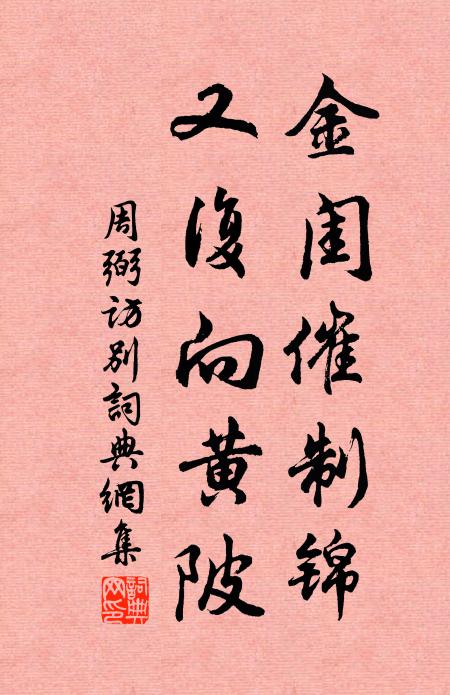 金闺催制锦
又復向黄陂
周弼訪别詞典網集
詞典網印